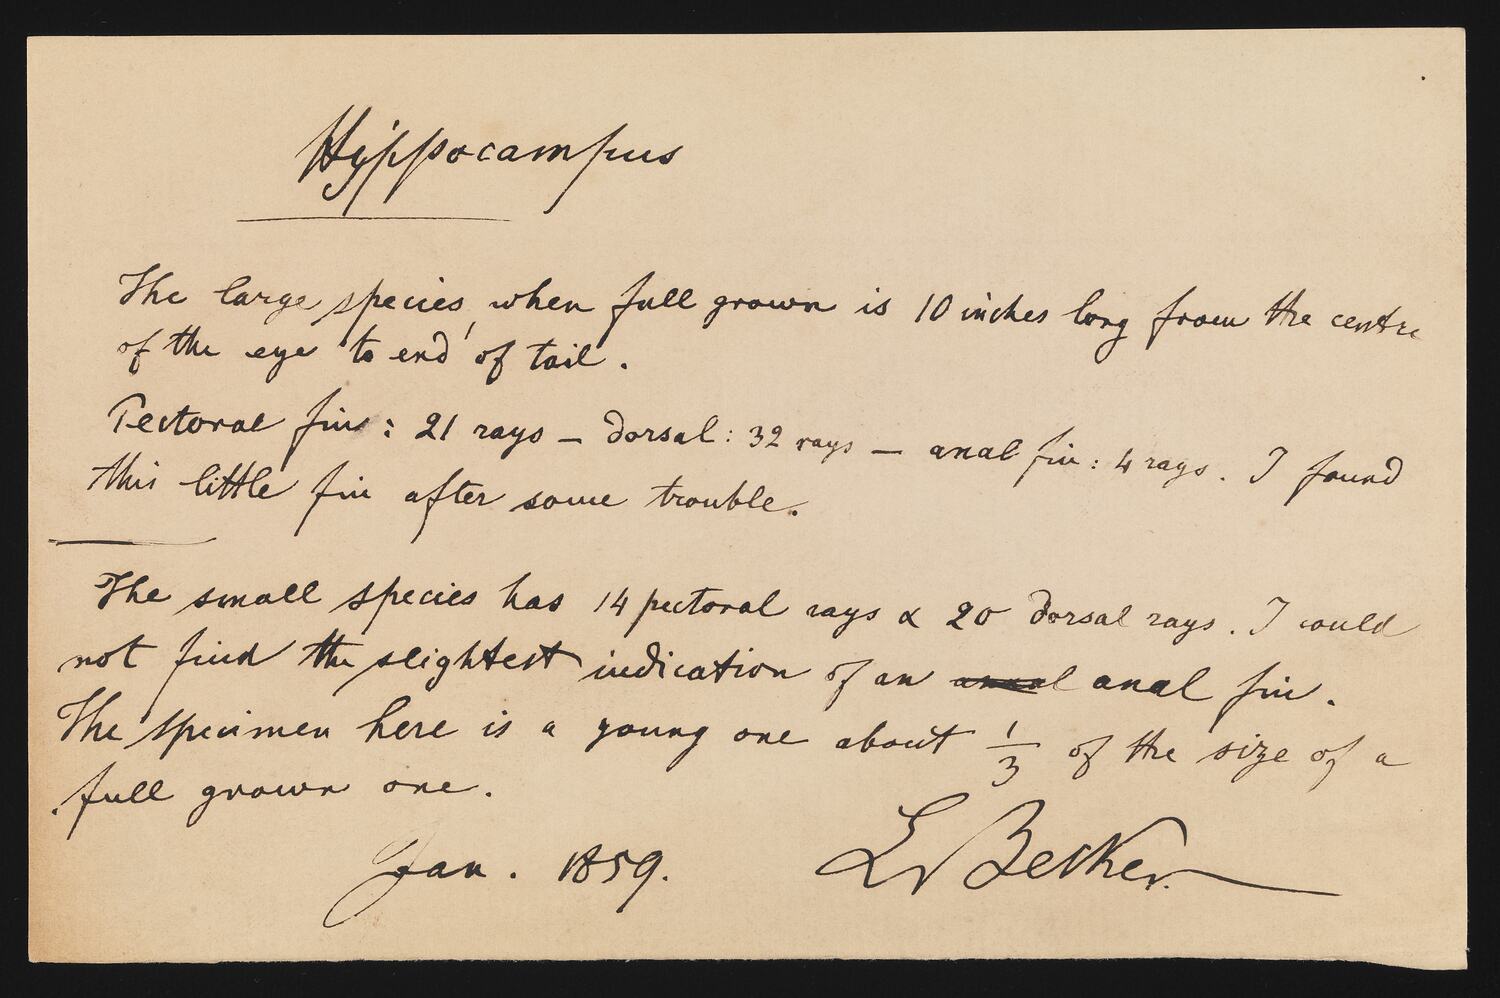 Hyppocampus
The large species, when full grown is 10 inches long from the centre
of the eye to end of tail.
Pectoral fins: 21 rays – dorsal: 32 rays – anal fin: 4 rays. I found
this little fin after some trouble.
The small species has 14 pectoral rays & 20 dorsal rays. I could
not find the slightest indication of an annal anal fin.
The specimen here is a young one about 1/3 of the size of a
full grown one.
Jan. 1859. L Becker.